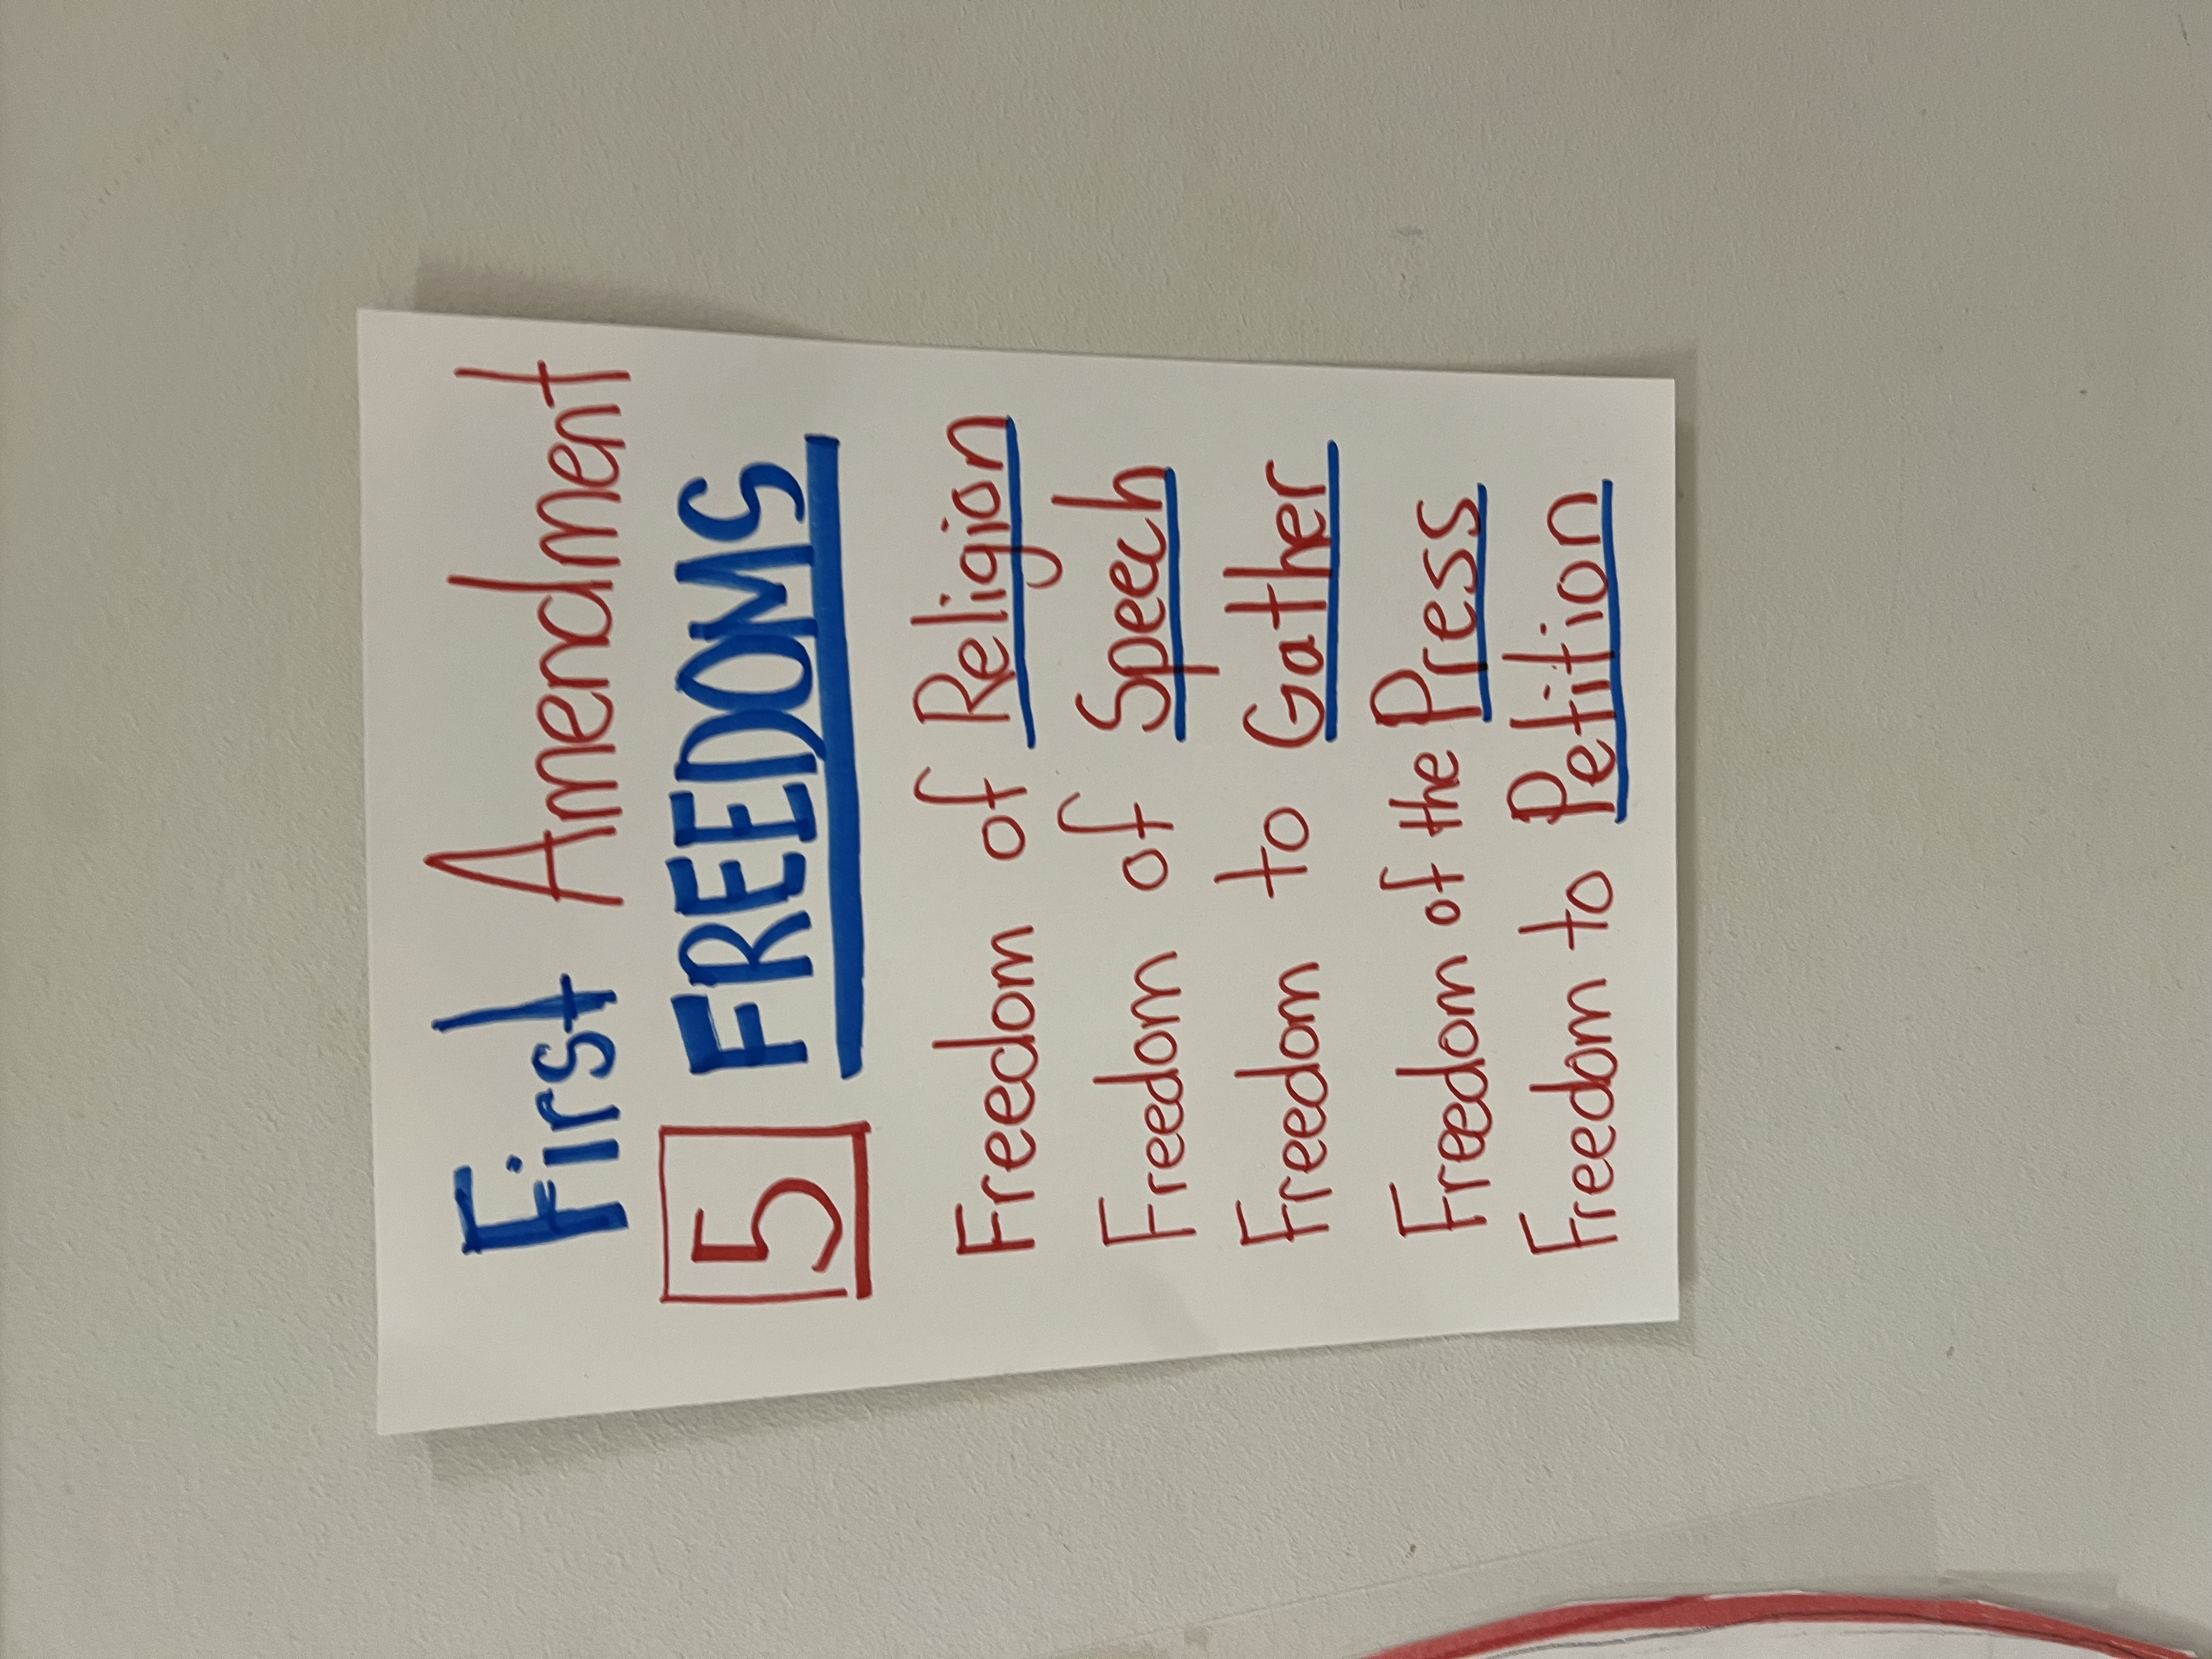 First Amendment
5 FREEDOMS
Freedom of Religion
Freedom of Speech
Freedom to Gather
Freedom of the Press
Freedom to Petition